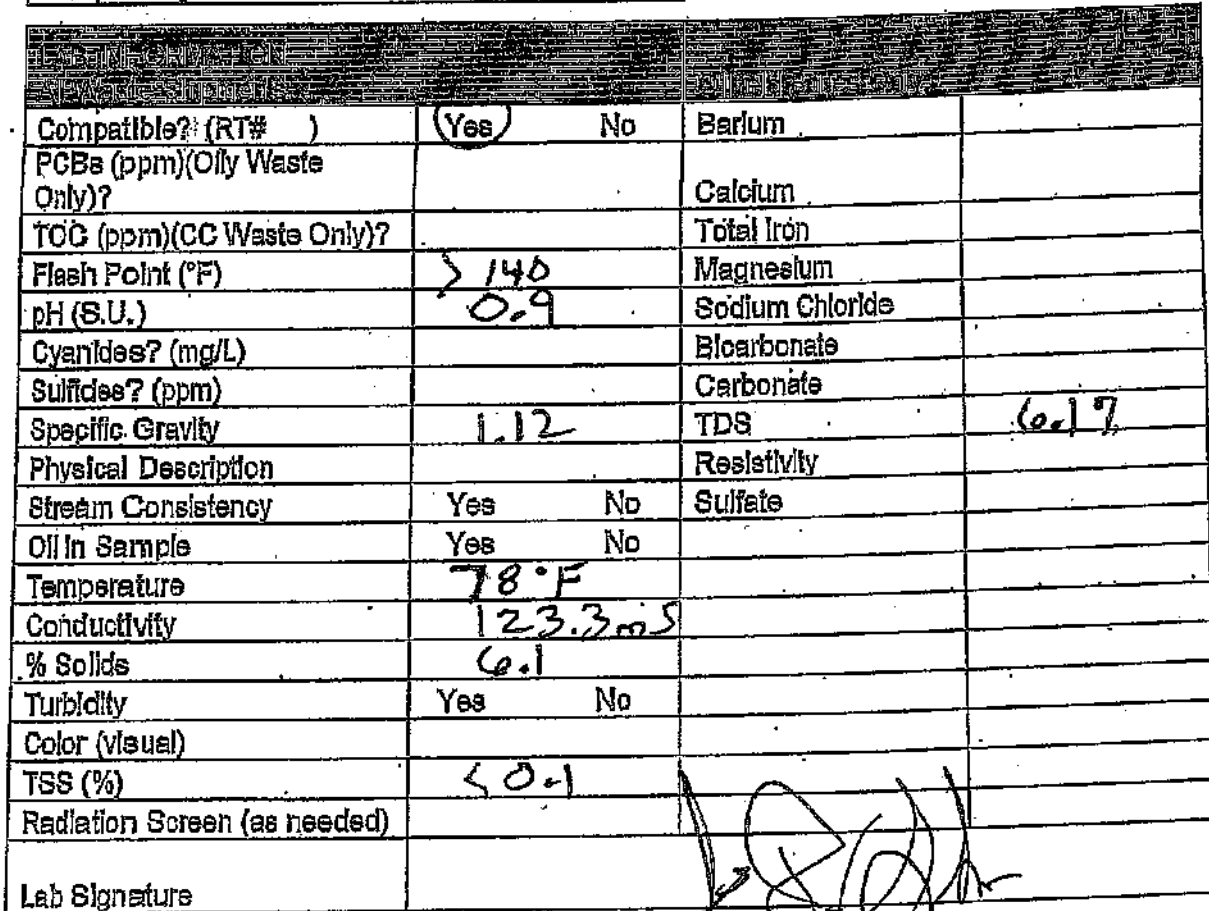 LAB INFORMATION
All Waste Shipments
Compatible? (RT# ) Yes No Barium
PCBs (ppm)(Oily Waste
Only)? Calcium
TOC (ppm)(CC Waste Only)? Total Iron
Flash Point (°F) > 140 Magnesium
pH (S.U.) 0.9 Sodium Chloride
Cyanides? (mg/L) Bicarbonate
Sulfides? (ppm) Carbonate
Specific Gravity 1.12 TDS 6.17
Physical Description Resistivity
Stream Consistency Yes No Sulfate
Oil in Sample Yes No
Temperature 78°F
Conductivity 123.3 mS
% Solids 6.1
Turbidity Yes No
Color (visual)
TSS (%) < 0.1
Radiation Screen (as needed)
Lab Signature